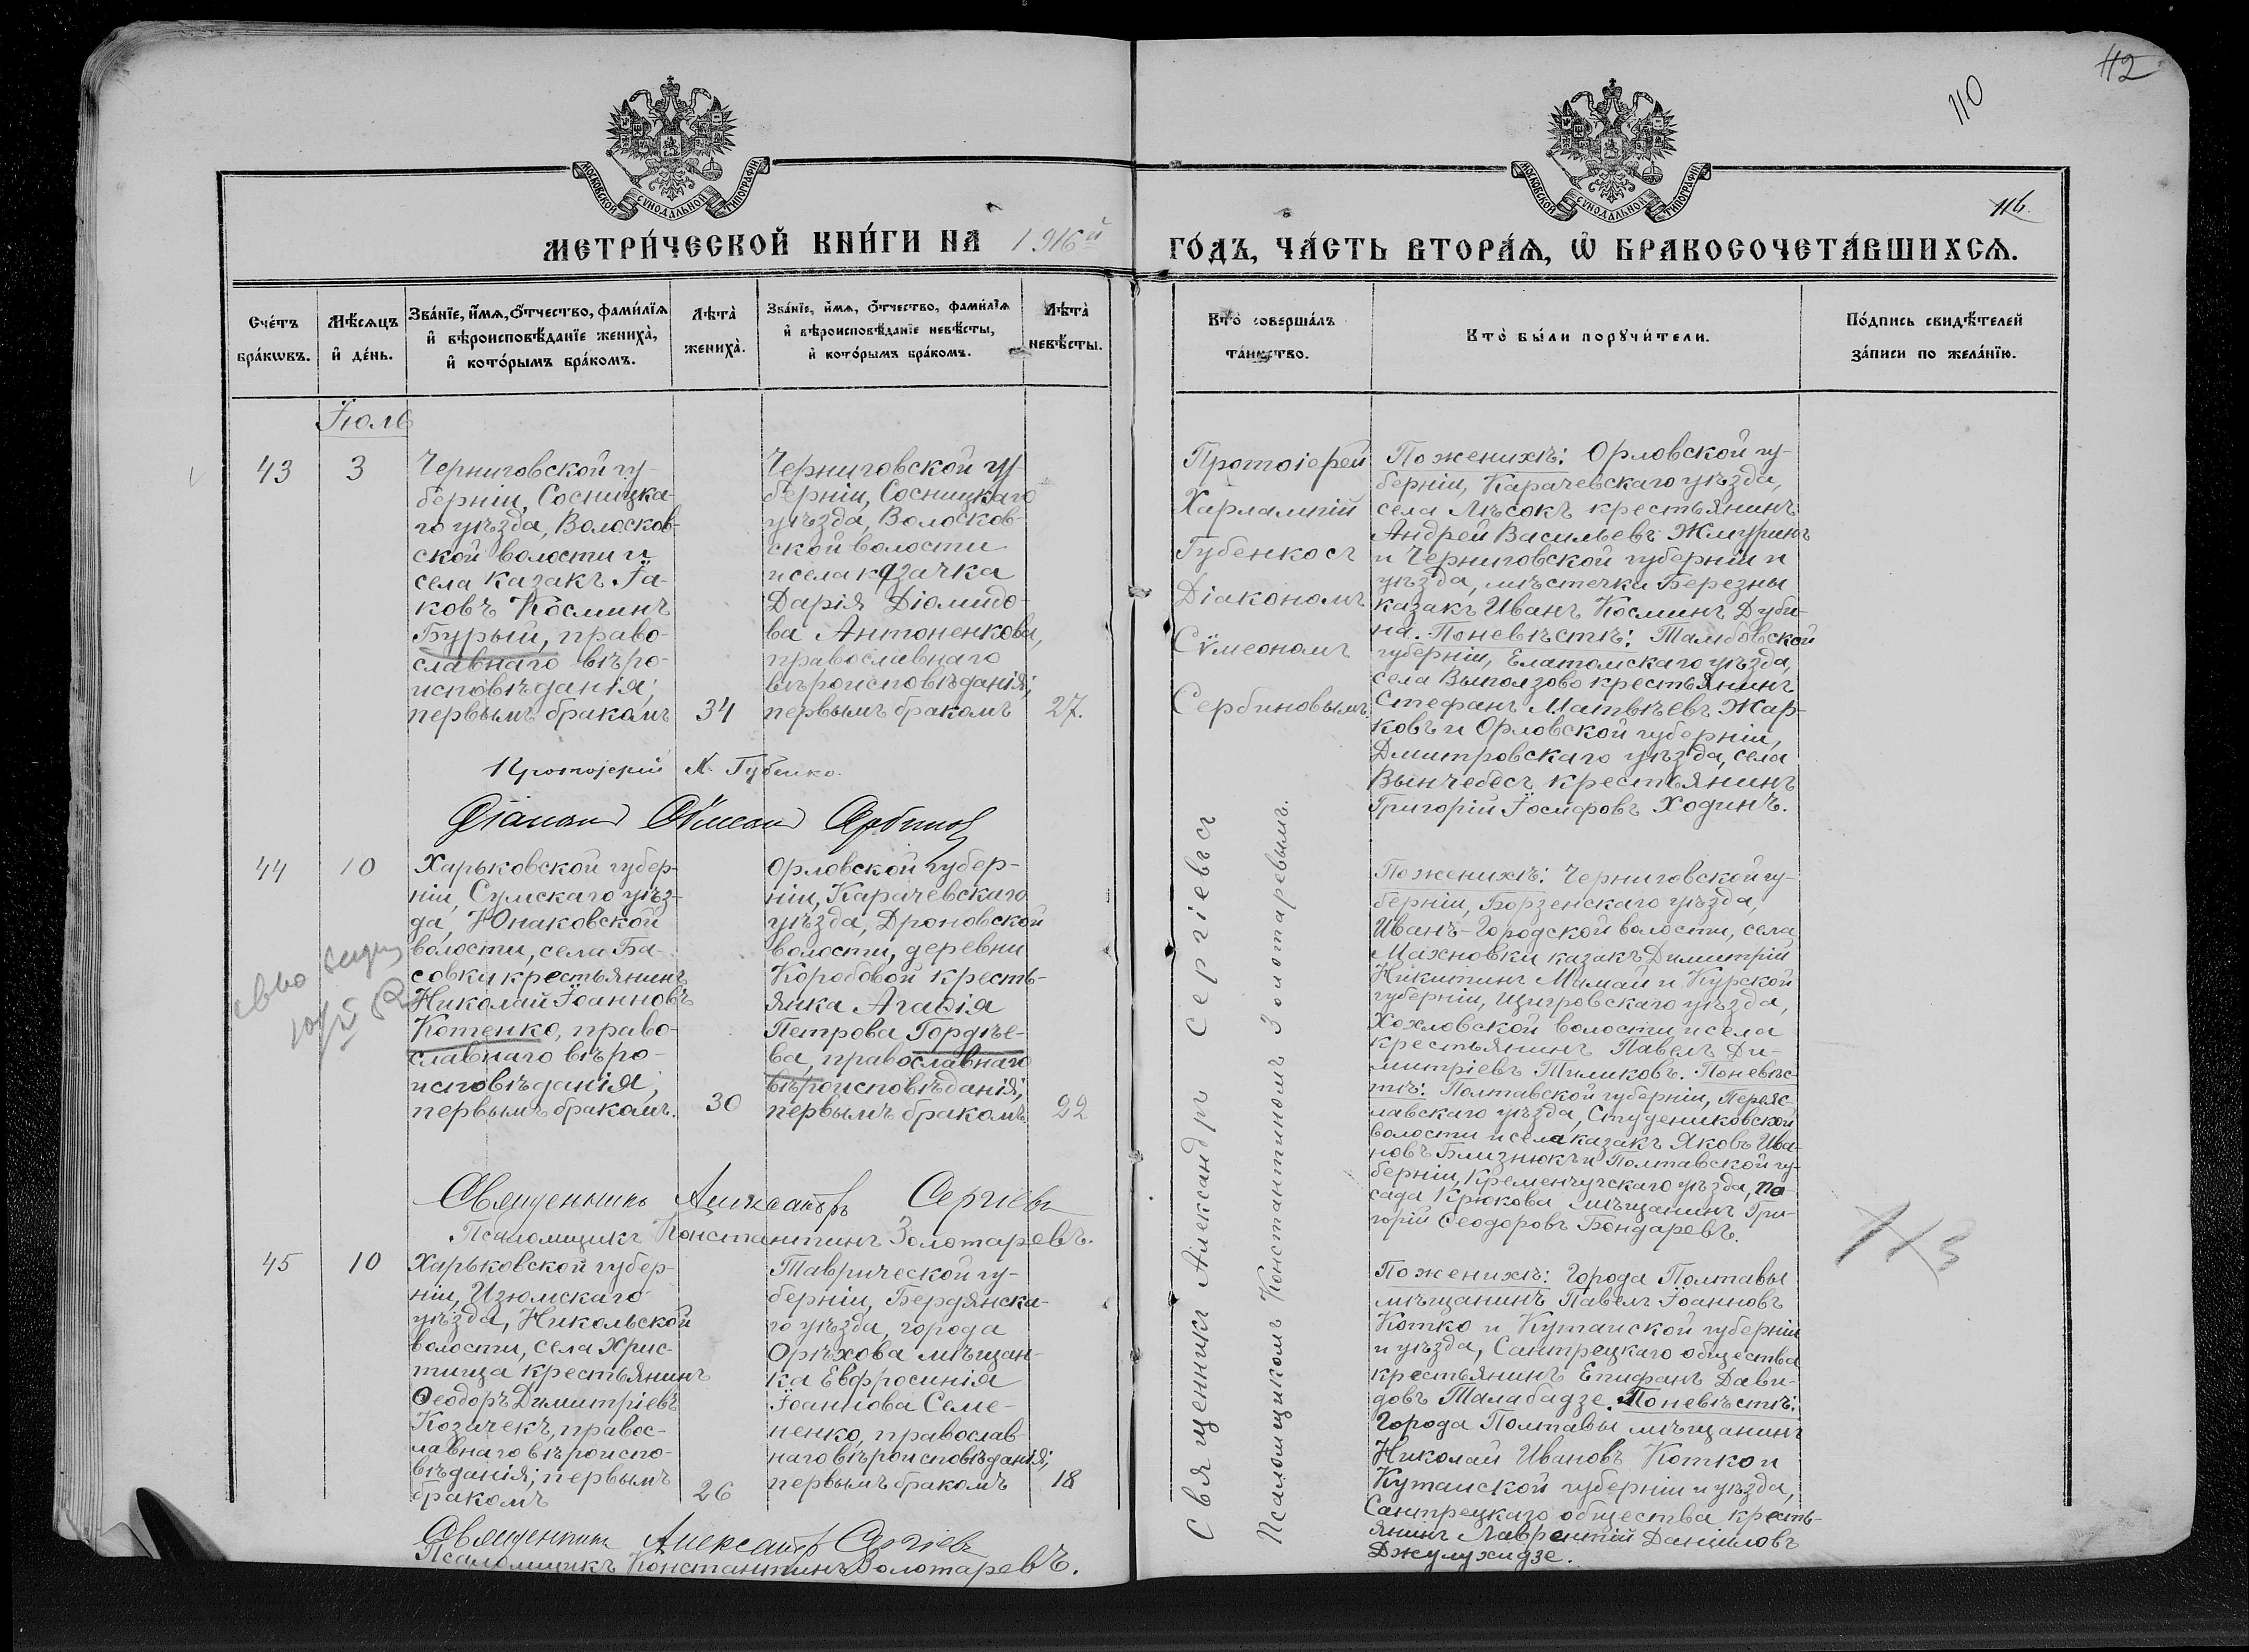 112
110
116.
МОСКОВСКОЙ СѴНОДАЛЬНОЙ ТИПОГРАФІИ
МОСКОВСКОЙ СѴНОДАЛЬНОЙ ТИПОГРАФІИ
МЕТРИ́ЧЕСКОЙ КНИ́ГИ НА 1916й
ГО́ДЪ, ЧА́СТЬ ВТОРА́Ѧ, Ѡ҆ БРАКОСОЧЕТА́ВШИХСѦ.
Сче́тъ
бра́кѡвъ.
Мѣ́сѧцъ
и҆ де́нь.
Зва́нїе, и҆́мѧ, ѻ҆́тчество, фами́лїѧ
и҆ вѣроисповѣ́данїе жениха̀,
и҆ кото́рымъ бра́комъ.
Лѣ́та̀
жениха̀.
Зва́нїе, и҆́мѧ, ѻ҆́тчество, фами́лїѧ
и҆ вѣроисповѣ́данїе невѣ́сты,
и҆ кото́рымъ бра́комъ.
Лѣ́та̀
невѣ́сты.
Кто̀ соверша́лъ
та́инство.
Кто̀ бы́ли порꙋчи́тели.
По́дпись свидѣ́телей
за́писи по жела́нїю.
Іюль
43
3
Черниговской гу-
берніи, Сосницка-
го уѣзда, Волосков-
ской волости и
села казакъ Іа-
ковъ Косминъ
Бурый, право-
славнаго вѣро-
исповѣданія;
первымъ бракомъ
34
Черниговской гу-
берніи, Сосницкаго
уѣзда, Волосков-
ской волости
и села козачка
Дарія Діомидо-
ва Антоненкова,
православнаго
вѣроисповѣданія;
первымъ бракомъ
27.
Протоіерей
Харлампій
Губенко съ
Діакономъ
Сѵмеономъ
Сербиновымъ.
По женихѣ: Орловской гу-
берніи, Карачевскаго уѣзда,
села Лѣсокъ крестьянинъ
Андрей Васильевъ Жмуринъ
и Черниговской губерніи и
уѣзда, мѣстечка Березны
казакъ Иванъ Косминъ Дуби-
на. По невѣстѣ: Тамбовской
губерніи, Елатомскаго уѣзда,
села Выползово крестьянинъ
Стефанъ Матвѣевъ Жар-
ковъ и Орловской губерніи,
Дмитровскаго уѣзда, села
Вынчебесъ крестьянинъ
Григорій Іосифовъ Ходинъ.
Протоіерей Х. Губенко.
Діаконъ Сѵмеонъ Сербиновъ
44
10
Харьковской губер-
ніи, Сумскаго уѣз-
да, Юнаковской
волости, села Ба-
совки крестьянинъ
Николай Іоанновъ
Котенко, право-
славнаго вѣро-
исповѣданія;
первымъ бракомъ.
30
Орловской губер-
ніи, Карачевскаго
уѣзда, Дроновской
волости, деревни
Коробовой кресть-
янка Агафія
Петрова Гордѣе-
ва, православнаго
вѣроисповѣданія;
первымъ бракомъ
22
Священникъ Александръ Сергіевъ съ
Псаломщикомъ Константиномъ Золотаревымъ.
По женихѣ: Черниговской гу-
берніи, Борзенскаго уѣзда,
Иванъ-Городской волости, села
Махновки казакъ Димитрій
Никитинъ Мамай и Курской
губерніи, Щигровскаго уѣзда,
Хохловской волости и села
крестьянинъ Павелъ Ди-
митріевъ Тиликовъ. По невѣс-
тѣ: Полтавской губерніи, Переяс-
лавскаго уѣзда, Студениковской
волости и села казакъ Яковъ Ива-
новъ Близнюкъ и Полтавской гу-
берніи, Кременчугскаго уѣзда, по-
сада Крюкова мѣщанинъ Гри-
горій Ѳеодоровъ Бондаревъ.
Священникъ Александръ Сергіевъ
Псаломщикъ Константинъ Золотаревъ.
45
10
Харьковской губер-
ніи, Изюмскаго
уѣзда, Никольской
волости, села Хрис-
тища крестьянинъ
Ѳеодоръ Димитріевъ
Козачекъ, правос-
лавнаго вѣроиспо-
вѣданія; первымъ
бракомъ
26
Таврической гу-
берніи, Бердянска-
го уѣзда, города
Орѣхова мѣщан-
ка Евфросинія
Іоаннова Семе-
ненко, православ-
наго вѣроисповѣданія;
первымъ бракомъ
18
По женихѣ: Города Полтавы
мѣщанинъ Павелъ Іоанновъ
Котко и Кутаиской губерніи
и уѣзда, Сантрецкаго общества
крестьянинъ Епифанъ Дави-
довъ Талабадзе. По невѣстѣ:
Города Полтавы мѣщанинъ
Николай Ивановъ Котко и
Кутаиской губерніи и уѣзда,
Сантрецкаго общества кресть-
янинъ Лаврентій Даніиловъ
Джулухидзе.
Священникъ Александръ Сергіевъ
Псаломщикъ Константинъ Золотаревъ.